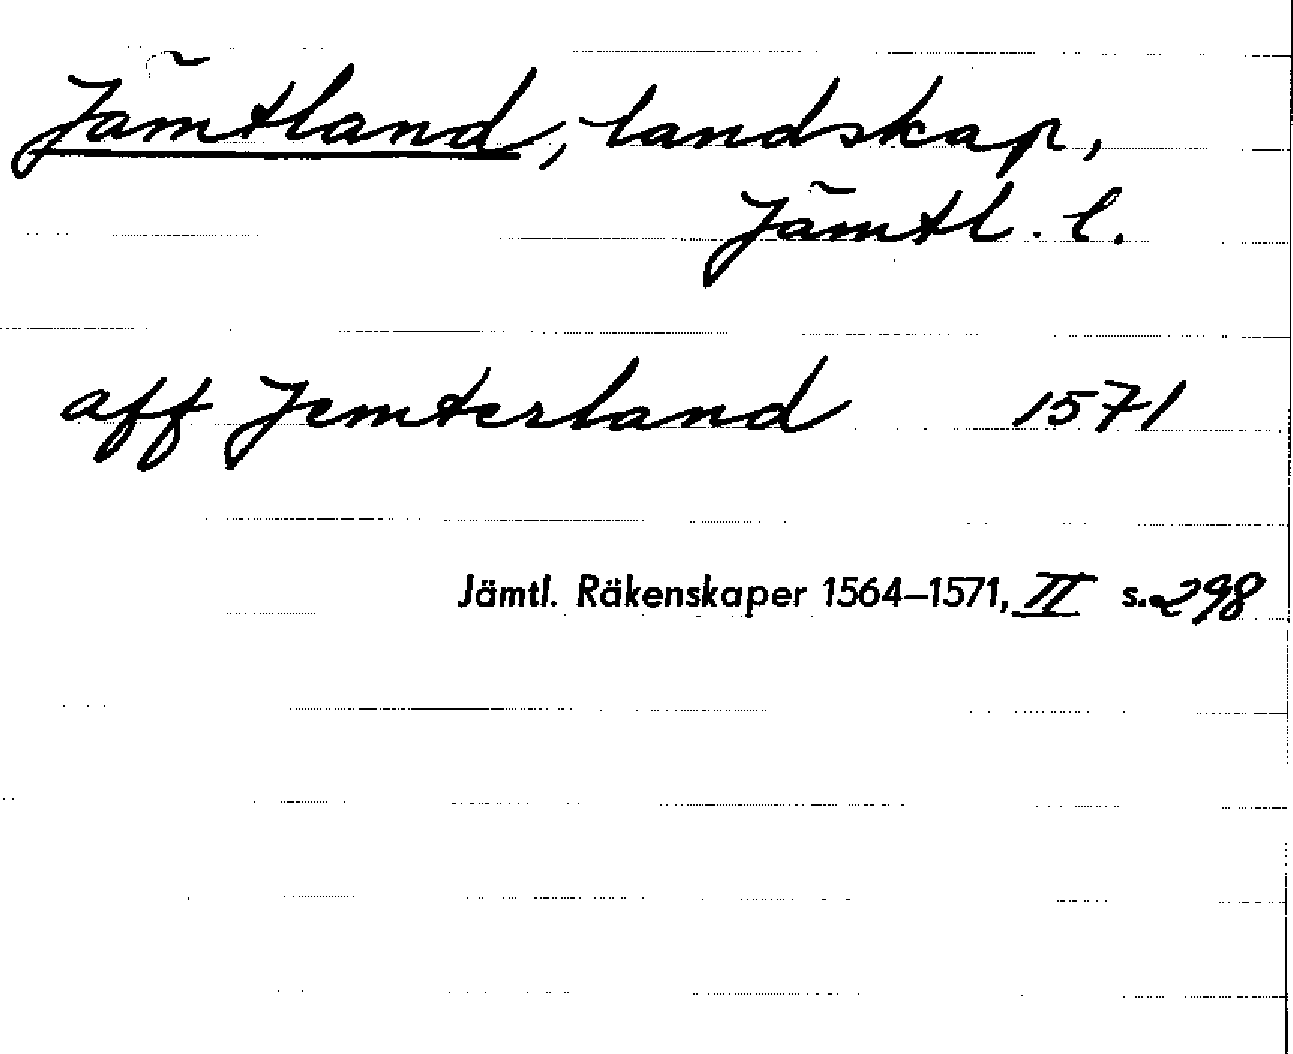 Jämtland, landskap,
Jämtl. l.
aff Jemterland 1571
Jämtl. Räkenskaper 1564–1571, II s. 298